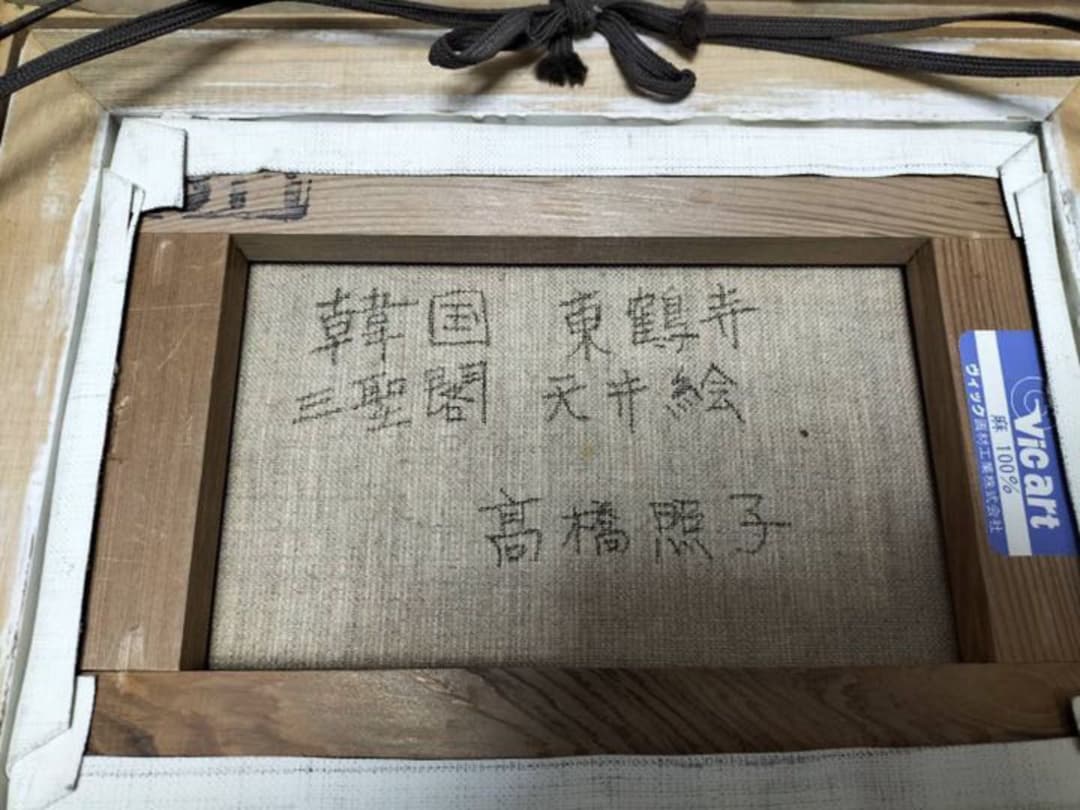 韓国 東鶴寺
三聖閣 天井絵
高橋照子
Vicart
麻 100%
ウィック画材工業株式会社